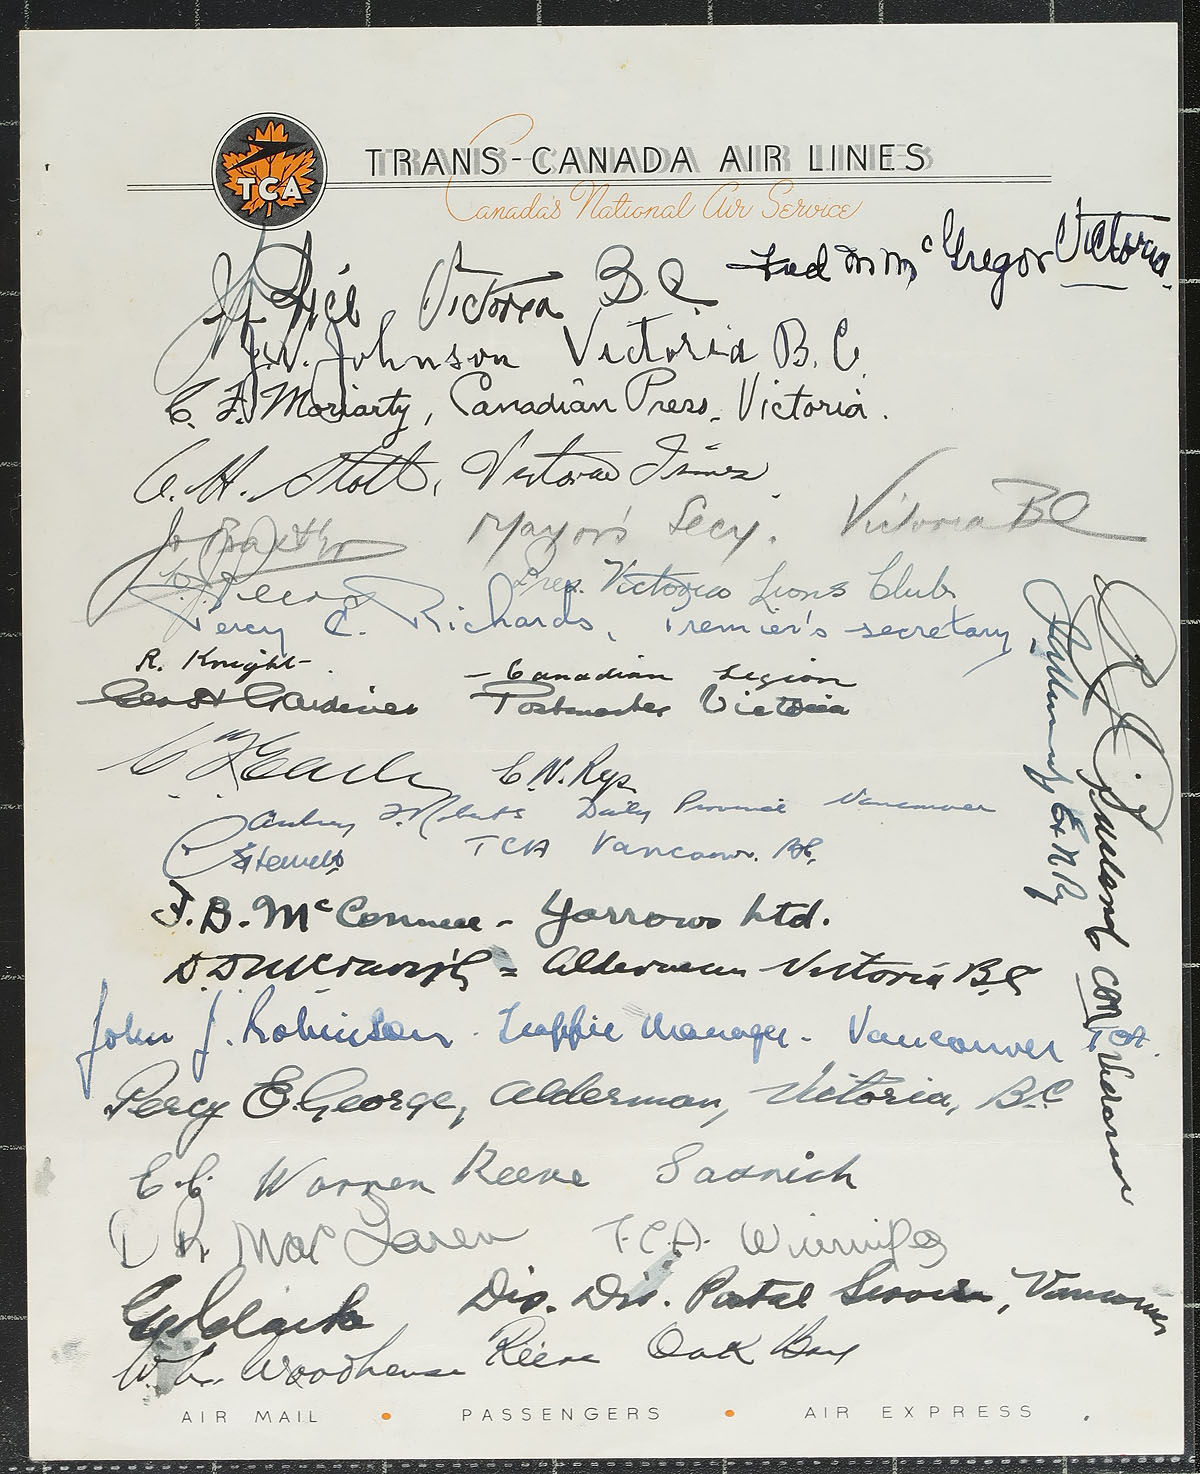 TCA
TRANS-CANADA AIR LINES
Canada's National Air Service
Fred M McGregor Victoria.
Rice Victoria B.C
J.W. Johnson Victoria B.C.
C. F. Moriarty, Canadian Press, Victoria.
C. H. Stott, Victoria Times
Mayor's Secy. Victoria BC
Pres. Victoria Lions Club
Percy C. Richards, Premier's secretary
R. Knight - Canadian Legion
Geo H Gardiner Postmaster Victoria
C.N. Rys
Aubrey F. Roberts Daily Province Vancouver
TCA Vancouver. BC.
F. B. McConnell - Yarrows Ltd.
Alderman Victoria B.C
John J. Robinson. Traffic Manager. Vancouver TCA.
Percy E. George, Alderman, Victoria, B.C.
E.C. Warren Reeve Saanich
D R. MacLaren T.C.A. Winnipeg
Dis. Dir. Postal Service, Vancouver
W. L. Woodhouse Reeve Oak Bay
E & N Ry
AIR MAIL • PASSENGERS • AIR EXPRESS